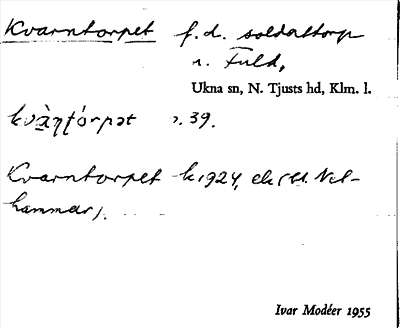 Kvarntorpet f.d. soldattorp
u. Fuld,
Ukna sn, N. Tjusts hd, Klm. l.
kvà̱ɳʈórpət s. 39.
Kvarntorpet k 1924, ek (bl. Nel-
hammar).
Ivar Modéer 1955